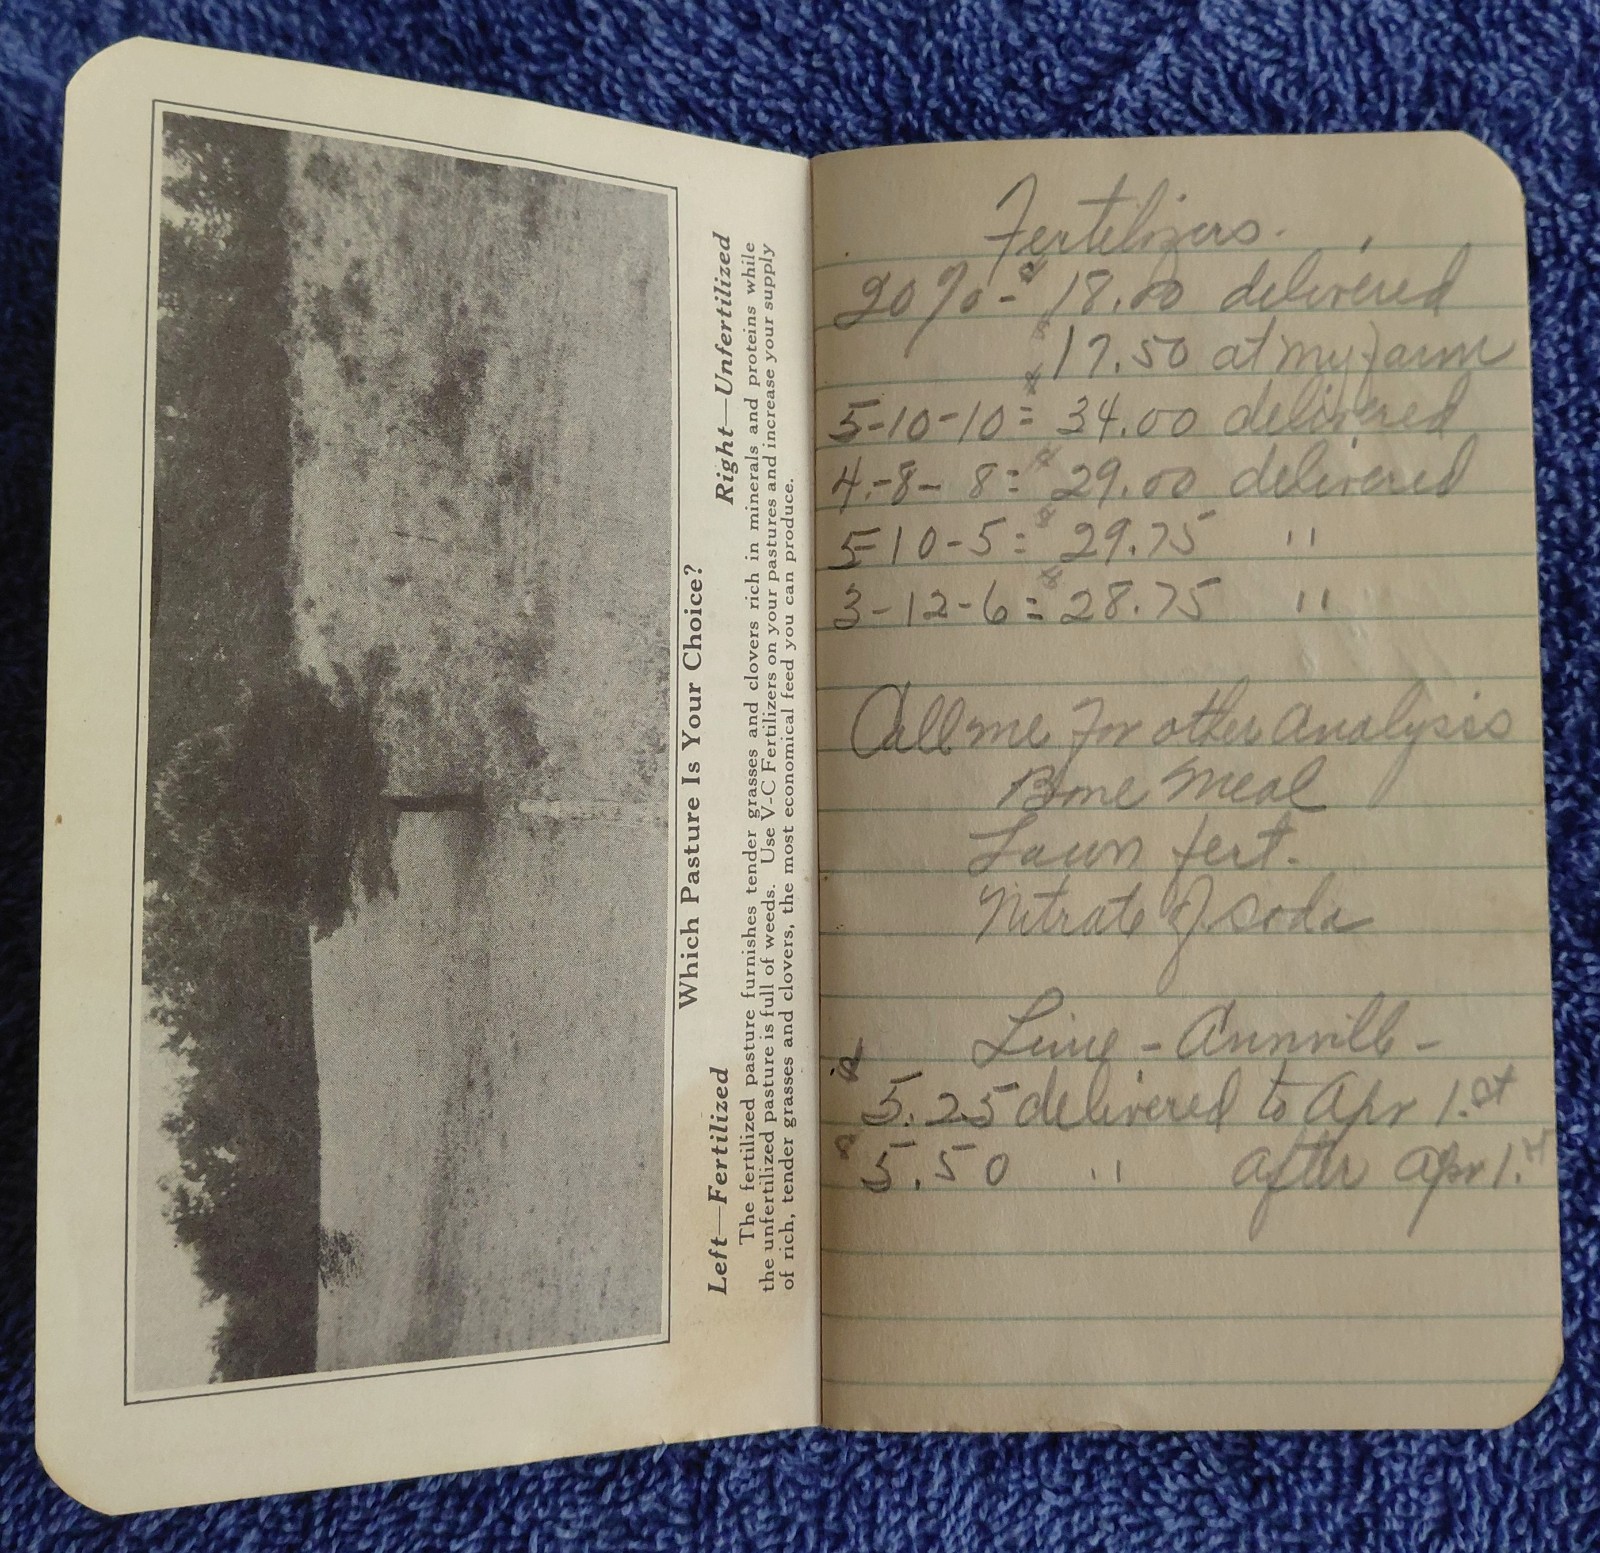 Which Pasture Is Your Choice?
Left—Fertilized Right—Unfertilized
The fertilized pasture furnishes tender grasses and clovers rich in minerals and proteins while
the unfertilized pasture is full of weeds. Use V-C Fertilizers on your pastures and increase your supply
of rich, tender grasses and clovers, the most economical feed you can produce.
Fertilizers.
20%-$ 18.00 delivered
$17.50 at my farm
5-10-10 = $34.00 delivered
4-8-8 = $29.00 delivered
5-10-5 = $29.75 "
3-12-6 = $28.75 "
Call me for other analysis
Bone Meal
Lawn fert.
Nitrate of soda
Lime - Annville -
$5.25 delivered to Apr 1.st
$5.50 " after Apr 1.st